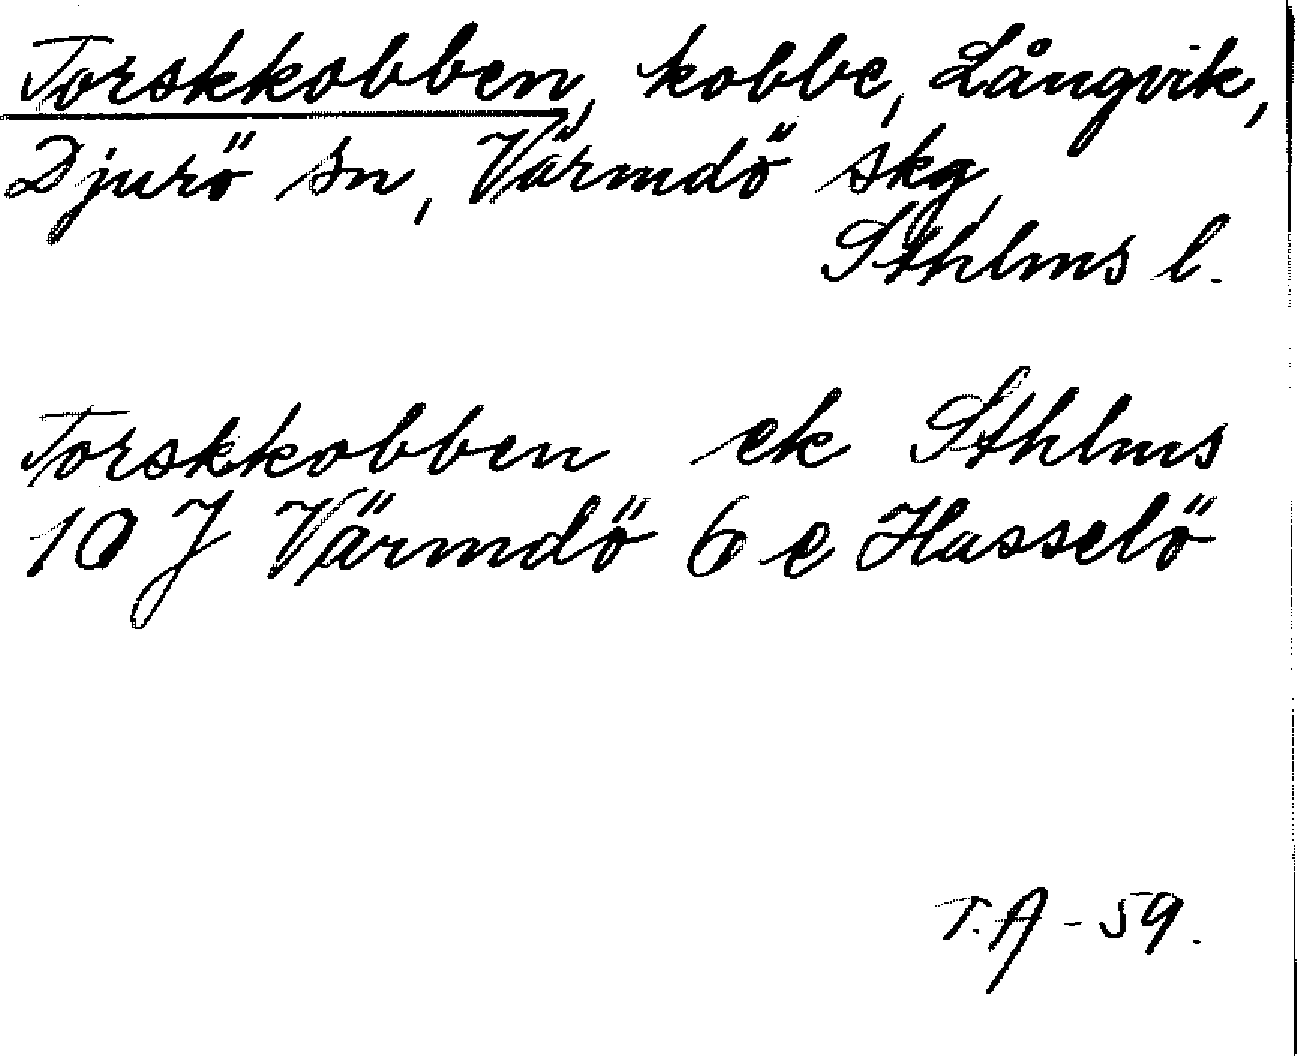 Torskkobben, kobbe, Långvik,
Djurö sn, Värmdö skg,
Sthlms l.
Torskkobben ek Sthlms
10 J Värmdö 6 e Hasselö
T.A - 59.